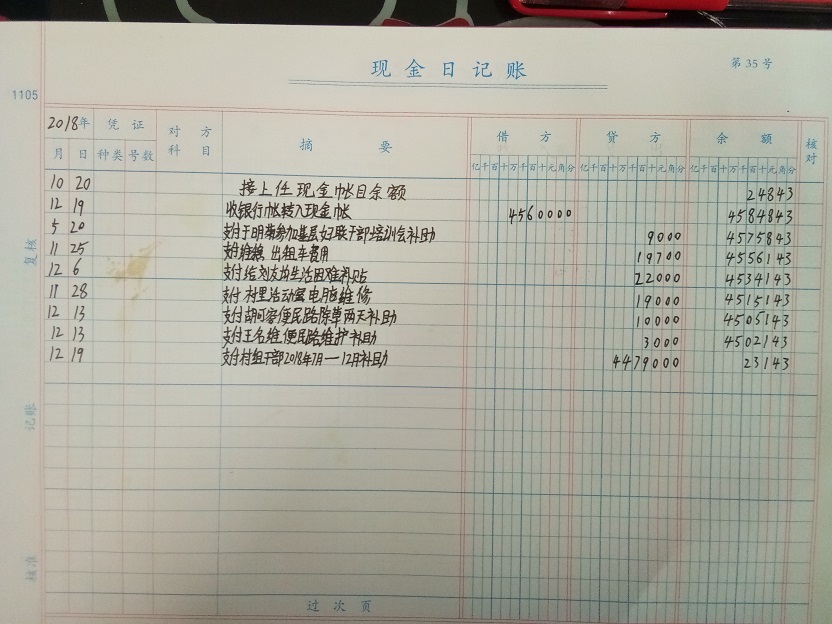 现金日记账
第 35 号
1105
2018年 凭 证 对 方 摘 要 借 方 贷 方 余 额 核对
月 日 种类 号数 科 目 亿千百十万千百十元角分 亿千百十万千百十元角分 亿千百十万千百十元角分
10 20 接上任现金帐目余额 24843
12 19 收银行帐转入现金帐 4560000 4584843
5 20 支付于明菊参加基层妇联干部培训会补助 9000 4575843
11 25 支付 出租车费用 19700 4556143
12 6 支付给刘友 生活困难补贴 22000 4534143
11 28 支付村里活动室电脑维修 19000 4515143
12 13 支付胡 便民路除草两天补助 10000 4505143
12 13 支付王名维便民路维护补助 3000 4502143
12 19 支付村组干部2018年7月—12月补助 4479000 23143
复核
记账
核准
过次页